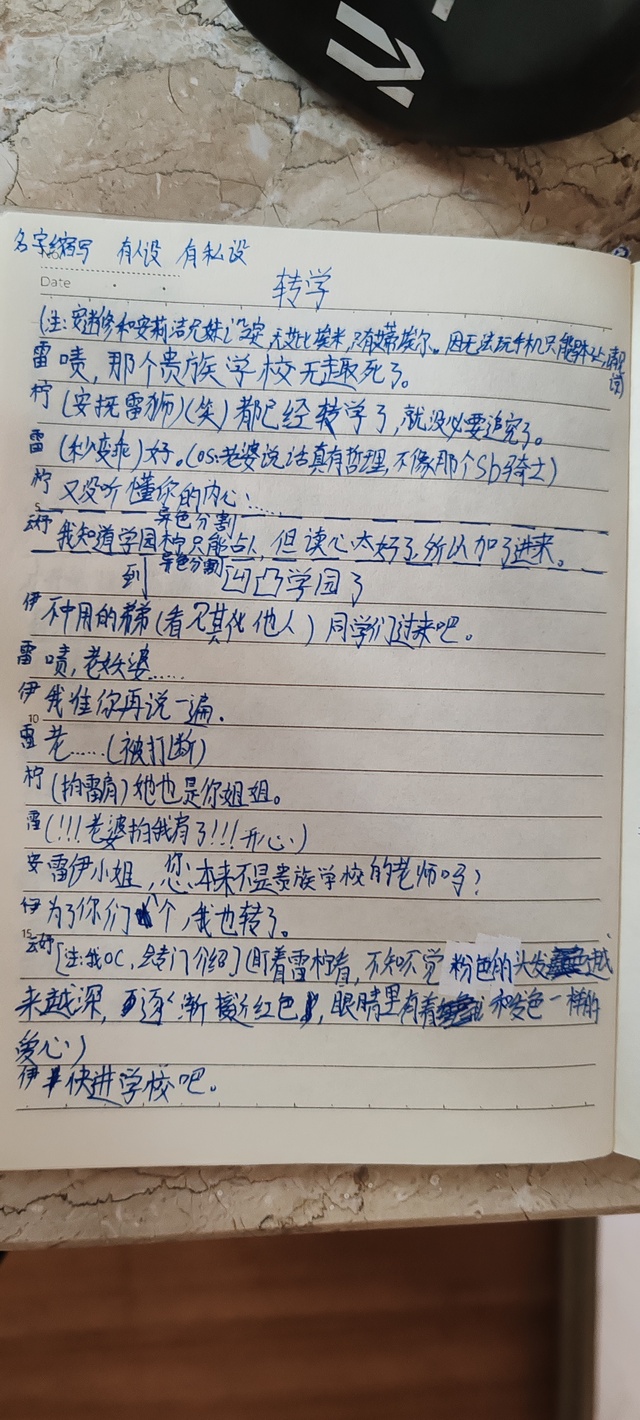 名字缩写 有人设 有私设
Date
转学
(注:安迷修和安莉洁兄妹设定,无艾比埃米,只有艾蒂埃尔。因无法玩手机只能
雷 啧,那个贵族学校无趣死了。
柠 (安抚雷狮)(笑)都已经转学了,就没必要追究了。
雷 (秒变乖)好。(os:老婆说话真有哲理,不像那个sb骑士)
柠 又没听懂你的内心……
异色分割
云纾 我知道学园柠只能占人,但读心太好了,所以加了进来。
异色分割
到凹凸学园了
伊 不中用的弟弟(看见其他人)同学们过来吧。
雷 啧,老妖婆……
伊 我准你再说一遍.
10
雷 老……(被打断)
柠 (拍雷肩)她也是你姐姐。
雷 (!!!老婆拍我肩了!!!开心)
安 雷伊小姐,您本来不是贵族学校的老师吗?
伊 为了你们个,我也转了。
15
云纾 [注:我OC,是专门介绍](盯着雷柠看,不知不觉粉色的头发越
来越深,逐渐接近红色,眼睛里有着和发色一样的
爱心)
伊 快进学校吧。